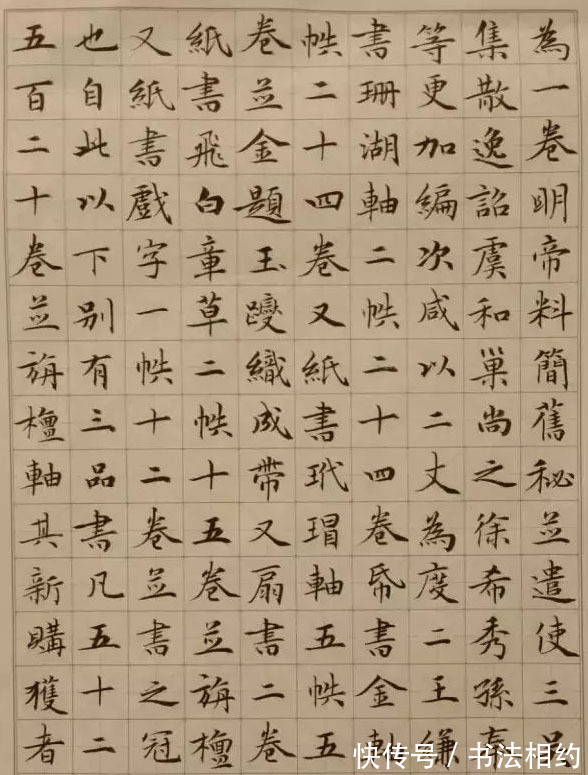 為一卷明帝料簡舊秘並遣使三
集散逸詔虞和巢尚之徐希秀孫
等更加編次咸以二丈為度二王縑
書珊湖軸二帙二十四卷帋書金軸
帙二十四卷又紙書玳瑁軸五帙五
卷並金題玉躞織成帶又扇書二卷
紙書飛白章草二帙十五卷並旃檀
又紙書戲字一帙十二卷並書之冠
也自此以下別有三品書凡五十二
五百二十卷並旃檀軸其新購獲者
快传号 / 书法相约